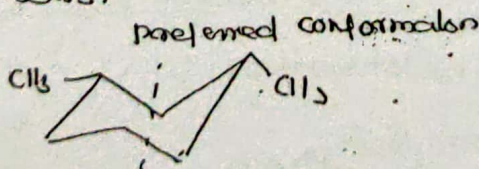 preferred conformation
CH₃
CH₃